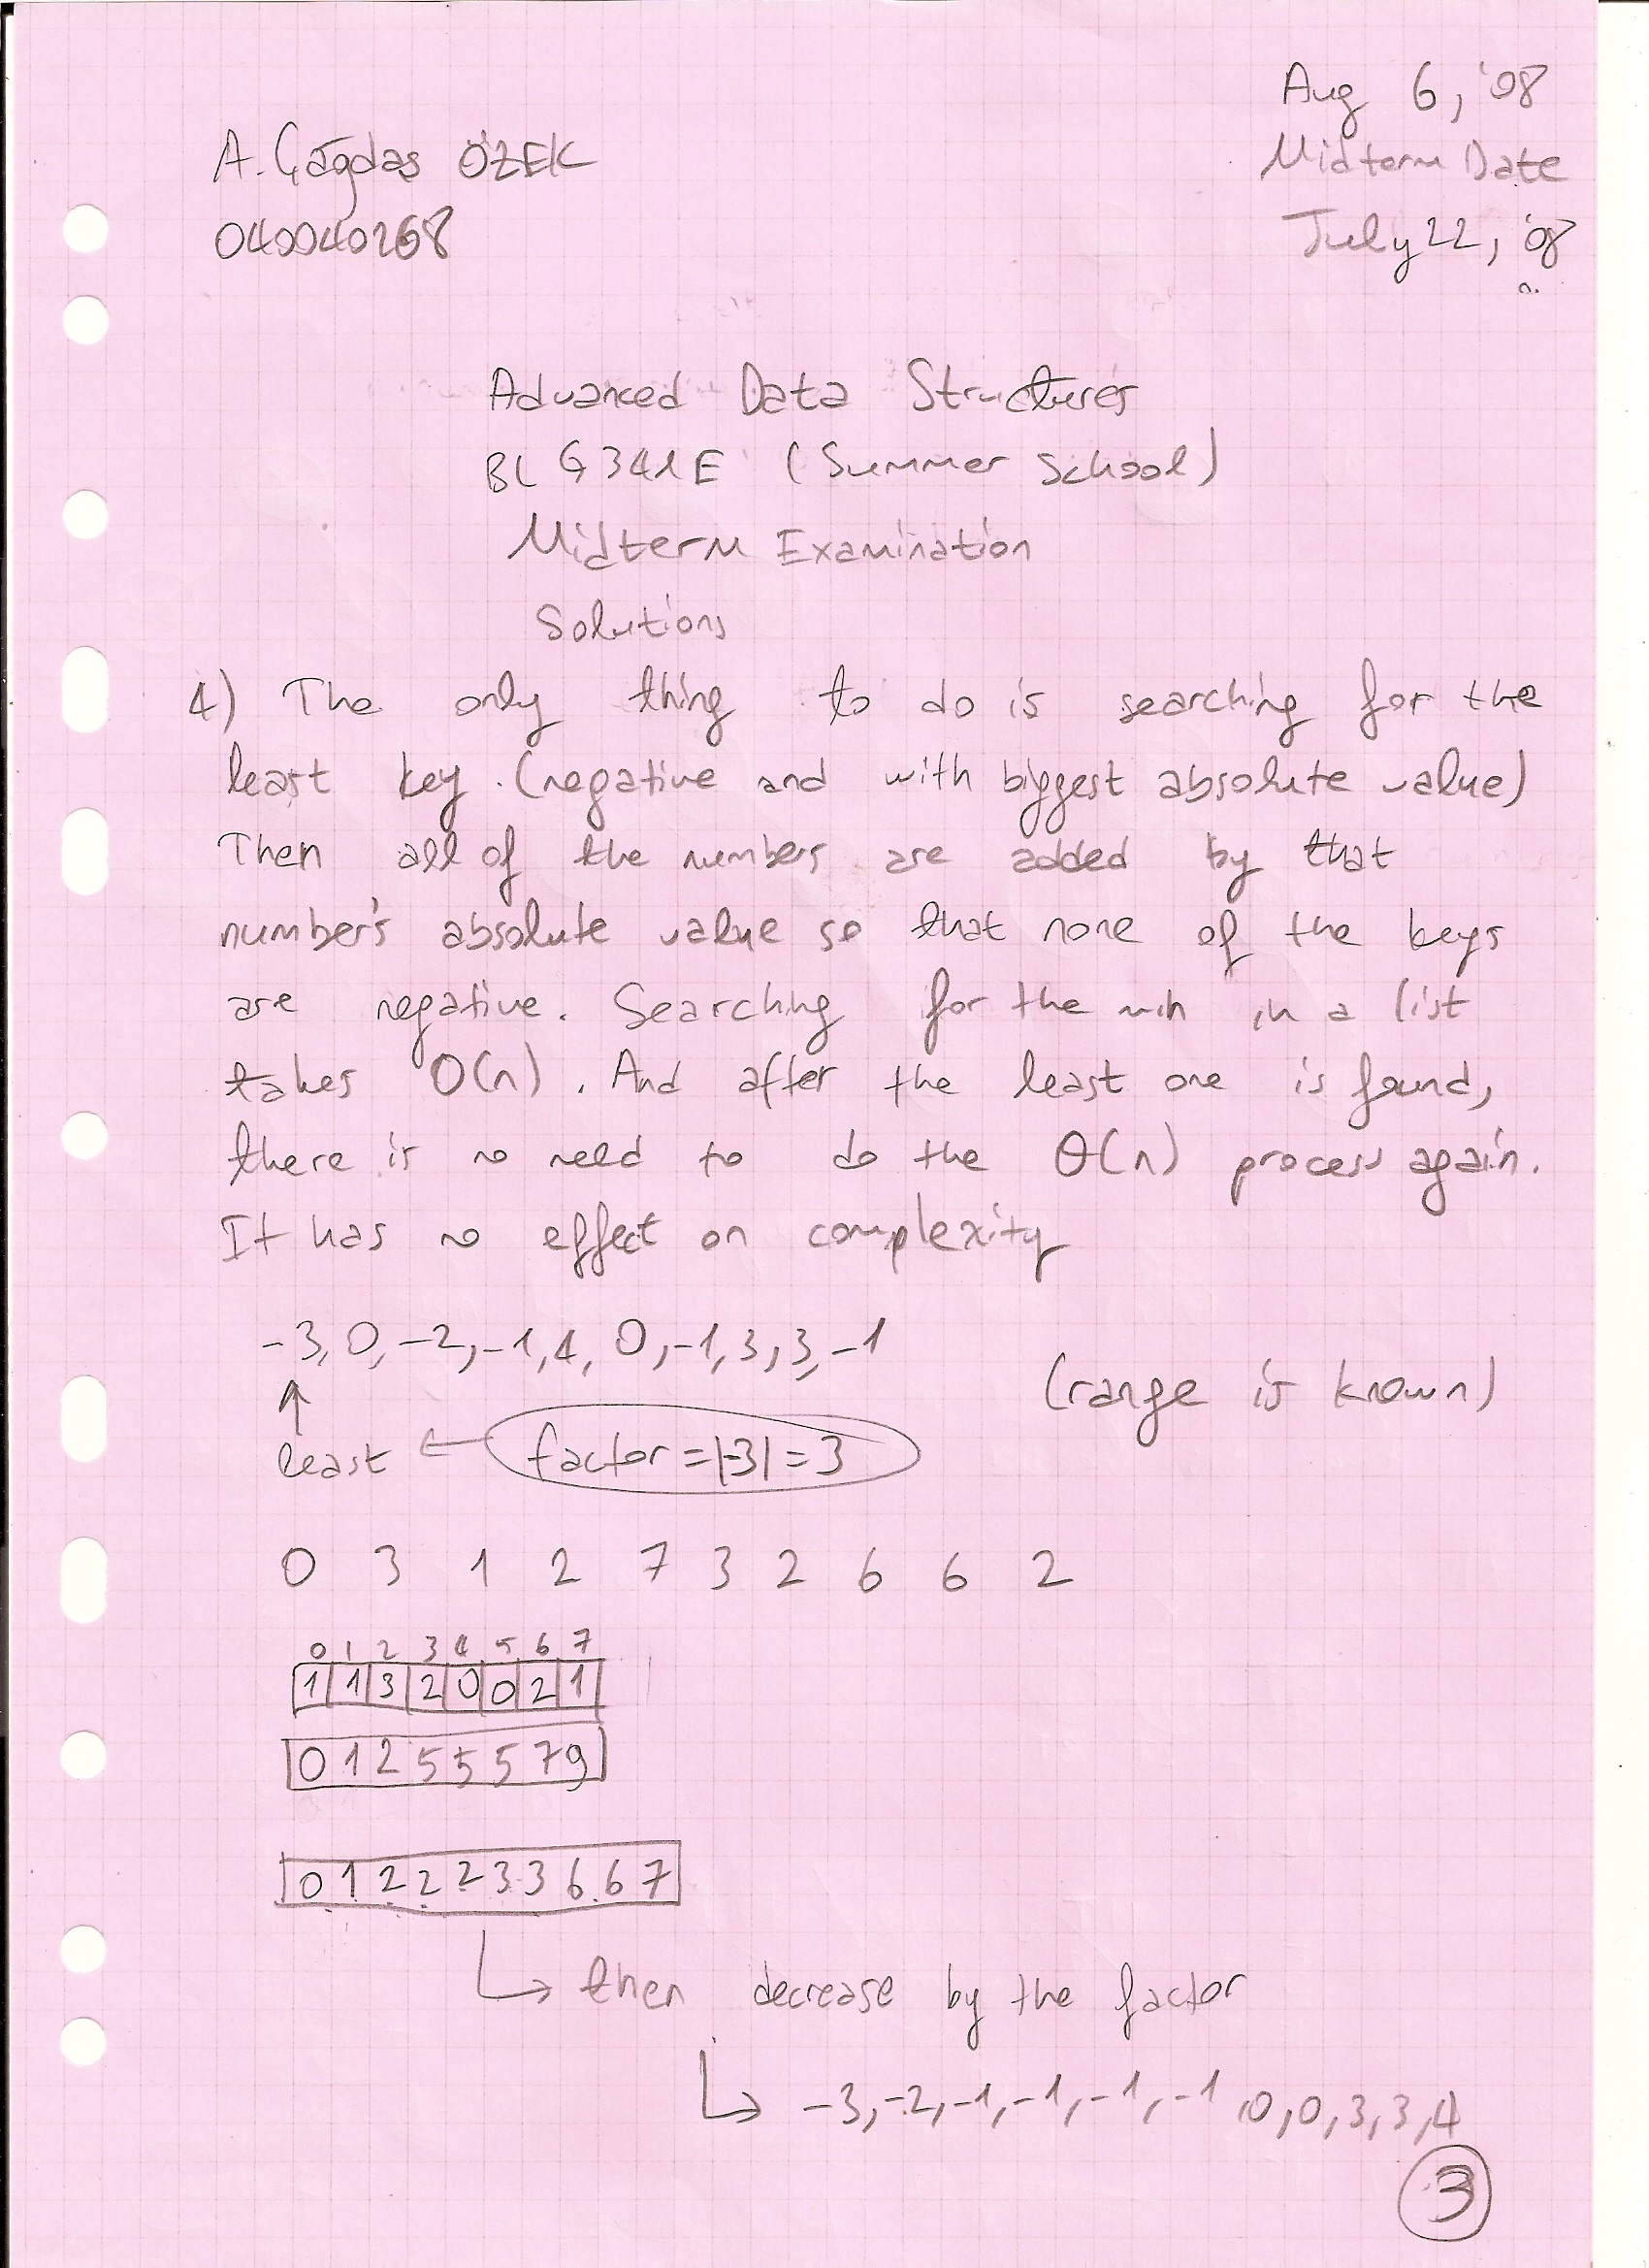 Aug 6, '08
A. Çağdaş ÖZEK
Midterm Date
040040268
July 22, '08
Advanced Data Structures
BLG341E (Summer School)
Midterm Examination
Solutions
4) The only thing to do is searching for the
least key. (negative and with biggest absolute value)
Then all of the numbers are added by that
number's absolute value so that none of the keys
are negative. Searching for the min in a list
takes O(n). And after the least one is found,
there is no need to do the Θ(n) process again.
It has no effect on complexity
-3, 0, -2, -1, 4, 0, -1, 3, 3, -1
(range is known)
least ← factor = |-3| = 3
0 3 1 2 7 3 2 6 6 2
0 1 2 3 4 5 6 7
1 1 3 2 0 0 2 1
0 1 2 5 5 5 7 9
0 1 2 2 2 3 3 6 6 7
↳ then decrease by the factor
↳ -3, -2, -1, -1, -1, -1, 0, 0, 3, 3, 4
3